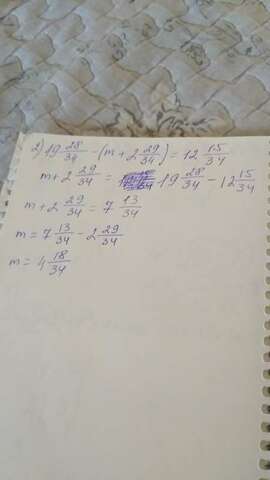 2) 19 28/34 - (m + 2 29/34) = 12 15/34
m + 2 29/34 = 19 28/34 - 12 15/34
m + 2 29/34 = 7 13/34
m = 7 13/34 - 2 29/34
m = 4 18/34